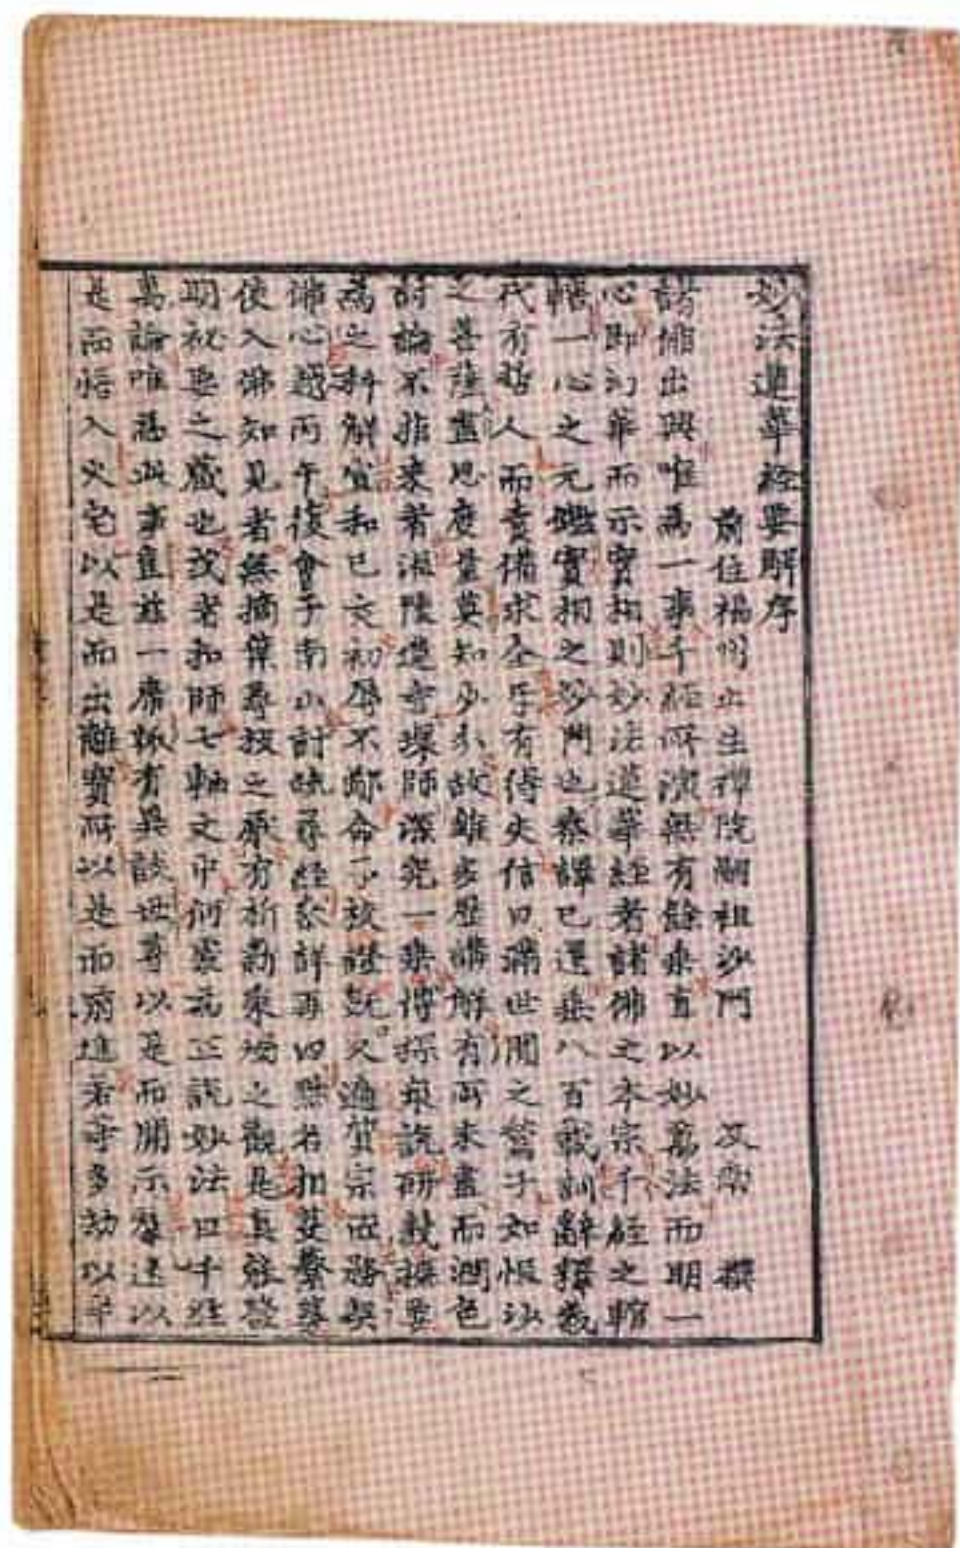 妙法蓮華經要解序
前住福州上生禪院嗣祖沙門 及南 撰
諸佛出興唯為一事千經所演無有餘乘直以妙萬法而明一
心即幻華而示實相則妙法蓮華經者諸佛之本宗千經之轄
轄一心之元鑑實相之妙門也秦譯已還垂八百載訓辭釋義
代有哲人而責備求全互有得失信曰滿世間之鶖子如恒沙
之菩薩盡思度量莫知少分故雖多歷講解有所未盡而潤色
討論不非來者淮陰遵寺璨師深究一乘博採衆說研覈撮要
為之科解宣和己亥初辱不鄙命予校證既又適賀宗匠務契
佛心越丙午復會于南山討疏尋經家詳再四點名相蔓蘩等
使入佛知見者無摘葉尋枝之厭方祈勸衆
之觀是真
明秘要之藏也或者扣師七軸文中何處
正說妙法曰千經
萬論唯為此事豈茲一席輒有異談世尊以是而開示羣迷以
是而悟入火宅以是而出離寶所以是而前進若乎多劫以辛